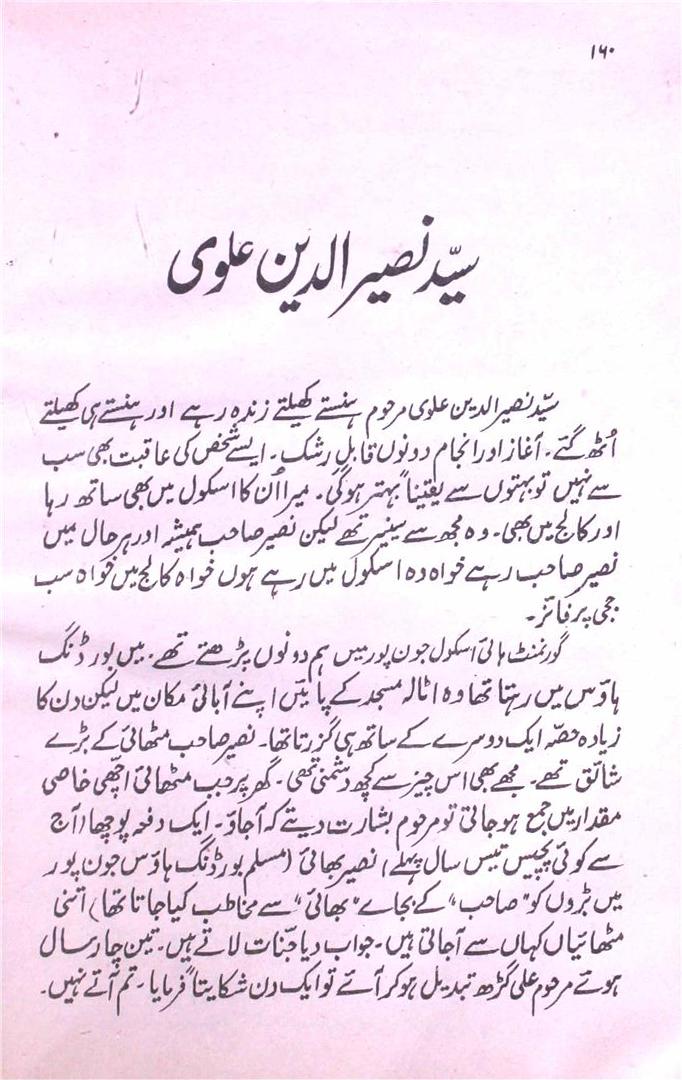 ۱۶۰
سیّد نصیر الدین علوی
سیّد نصیر الدین علوی مرحوم ہنستے کھیلتے زندہ رہے اور ہنستے ہی کھیلتے
اُٹھ گئے۔ آغاز اور انجام دونوں قابلِ رشک۔ ایسے شخص کی عاقبت بھی سب
سے نہیں تو بہتوں سے یقیناً بہتر ہوگی۔ میرا اُن کا اسکول میں بھی ساتھ رہا
اور کالج میں بھی۔ وہ مجھ سے سینیر تھے لیکن نصیر صاحب ہمیشہ اور ہر حال میں
نصیر صاحب رہے خواہ وہ اسکول میں رہے ہوں خواہ کالج میں خواہ سب
ججی پر فائز۔
گورنمنٹ ہائی اسکول جون پور میں ہم دونوں پڑھتے تھے۔ میں بورڈنگ
ہاؤس میں رہتا تھا وہ اٹالہ مسجد کے پائیں اپنے آبائی مکان میں لیکن دن کا
زیادہ حصّہ ایک دوسرے کے ساتھ ہی گزرتا تھا۔ نصیر صاحب مٹھائی کے بڑے
شائق تھے۔ مجھے بھی اس چیز سے کچھ دشمنی نہ تھی۔ گھر پر جب مٹھائی اچھّی خاصی
مقدار میں جمع ہو جاتی تو مرحوم بشارت دیتے کہ آجاؤ۔ ایک دفعہ پوچھا (آج
سے کوئی پچیس تیس سال پہلے) نصیر بھائی (مسلم بورڈنگ ہاؤس جون پور
میں بڑوں کو "صاحب" کے بجاے "بھائی" سے مخاطب کیا جاتا تھا) اتنی
مٹھائیاں کہاں سے آجاتی ہیں۔ جواب دیا جنّات لاتے ہیں۔ تین چار سال
ہوئے مرحوم علی گڑھ تبدیل ہو کر آئے تو ایک دن شکایتاً فرمایا۔ تم آتے نہیں۔